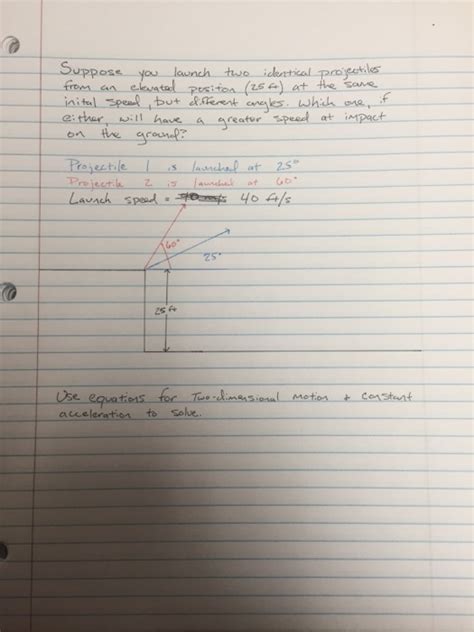 Suppose you launch two identical projectiles
from an elevated positon (25 ft) at the same
inital speed, but different angles. Which one, if
either, will have a greater speed at impact
on the ground?
Projectile 1 is launched at 25°
Projectile 2 is launched at 60°
Launch speed = 40 ft/s
60°
25°
25 ft
Use equations for Two-dimensional motion + constant
acceleration to solve.